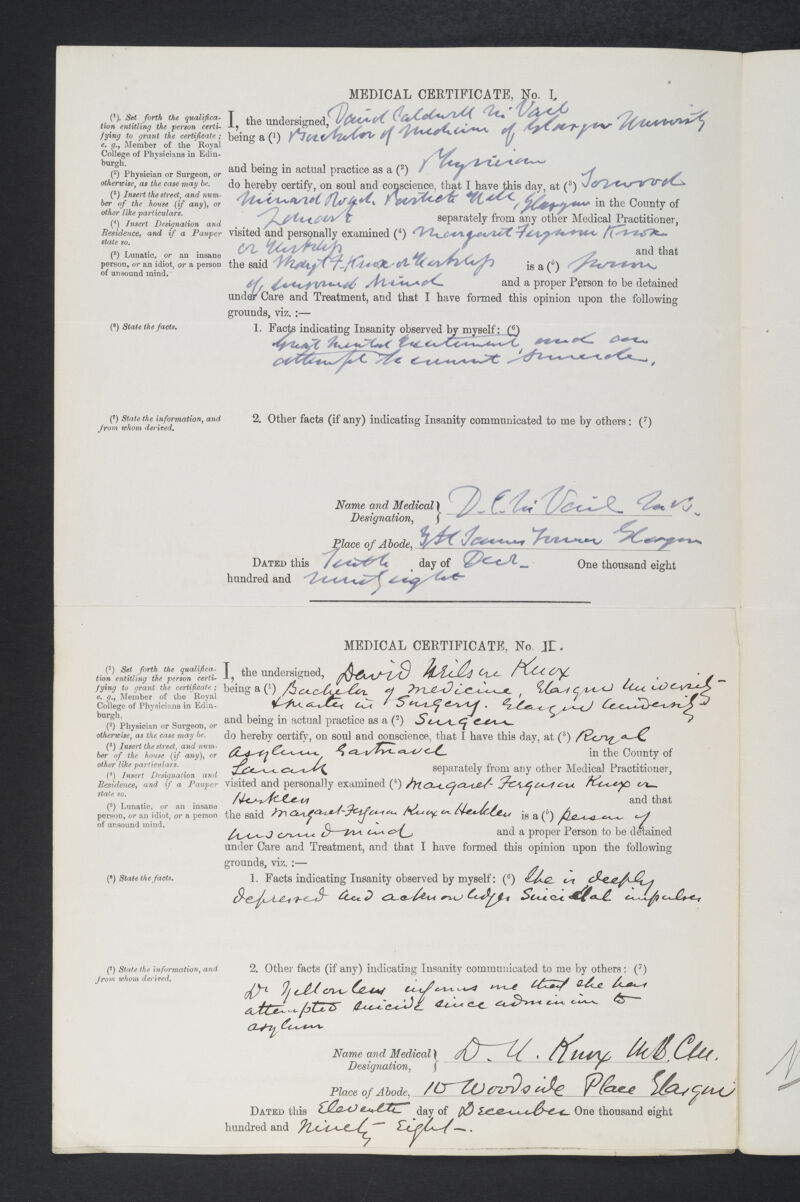 MEDICAL CERTIFICATE, No. I.
(¹). Set forth the qualifica-
tion entitling the person certi-
fying to grant the certificate;
e. g., Member of the Royal
College of Physicians in Edin-
burgh.
(²) Physician or Surgeon, or
otherwise, as the case may be.
(³) Insert the street, and num-
ber of the house (if any), or
other like particulars.
(⁴) Insert Designation and
Residence, and if a Pauper
state so.
(⁵) Lunatic, or an insane
person, or an idiot, or a person
of unsound mind.
I, the undersigned, David Caldwell McVail
being a (¹) Bachelor of Medicine of Glasgow University
and being in actual practice as a (²) Physician
do hereby certify, on soul and conscience, that I have this day, at (³) Torwood
Minard Road, Partick Hill, Glasgow in the County of
Lanark separately from any other Medical Practitioner,
visited and personally examined (⁴) Margaret Ferguson Knox
or and that
the said Margt F. Knox or is a (⁵) Person
of unsound Mind and a proper Person to be detained
under Care and Treatment, and that I have formed this opinion upon the following
grounds, viz. :—
(⁶) State the facts.
1. Facts indicating Insanity observed by myself: (⁶)
Great mental Excitement, and an
attempt to commit Suicide.
(⁷) State the information, and
from whom derived.
2. Other facts (if any) indicating Insanity communicated to me by others: (⁷)
Name and Medical Designation, D. C. McVail M.B.
Place of Abode, 3 St James Terrace Glasgow
DATED this Tenth day of Decr One thousand eight
hundred and ninety eight
MEDICAL CERTIFICATE, No. II.
(¹) Set forth the qualifica-
tion entitling the person certi-
fying to grant the certificate;
e. g., Member of the Royal
College of Physicians in Edin-
burgh.
(²) Physician or Surgeon, or
otherwise, as the case may be.
(³) Insert the street, and num-
ber of the house (if any), or
other like particulars.
(⁴) Insert Designation and
Residence, and if a Pauper
state so.
(⁵) Lunatic, or an insane
person, or an idiot, or a person
of unsound mind.
I, the undersigned, David Neilson Knox
being a (¹) Bachelor of Medicine, Glasgow University
& Master in Surgery. Glasgow University
and being in actual practice as a (²) Surgeon
do hereby certify, on soul and conscience, that I have this day, at (³) Royal
Asylum, Gartnavel in the County of
Lanark separately from any other Medical Practitioner,
visited and personally examined (⁴) Margaret Ferguson Knox or
and that
the said Margaret Ferguson Knox or is a (⁵) person of
unsound mind and a proper Person to be detained
under Care and Treatment, and that I have formed this opinion upon the following
grounds, viz. :—
(⁶) State the facts.
1. Facts indicating Insanity observed by myself: (⁶) She is deeply
depressed and acknowledges Suicidal impulses
(⁷) State the information, and
from whom derived.
2. Other facts (if any) indicating Insanity communicated to me by others: (⁷)
Dr Yellowlees informs me that she has
attempted suicide since admission to
asylum
Name and Medical Designation, D. N. Knox M.B. C.M.
Place of Abode, 10 Woodside Place Glasgow
DATED this Eleventh day of December One thousand eight
hundred and Ninety Eight.